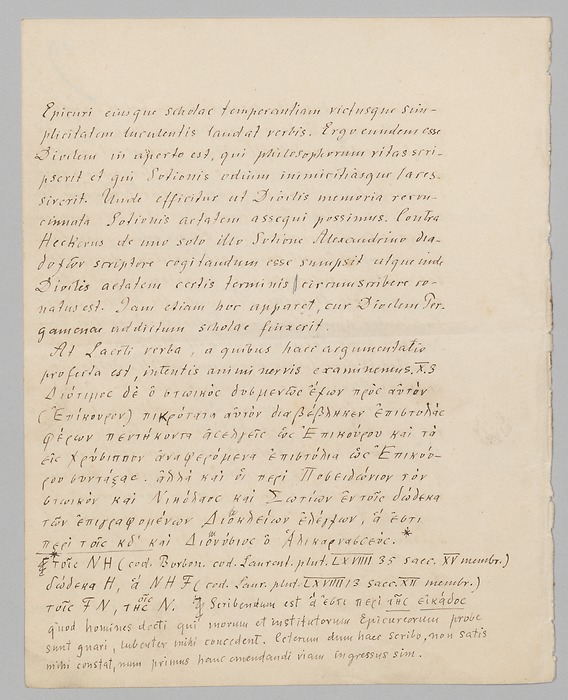 Epicuri eiusque scholae temperantiam victusque sim-
plicitatem luculentis laudat verbis. Ergo eundem esse
Dioclem in aperto est, qui philosophorum vitas scri-
pserit et qui Sotionis odium inimicitiasque laces-
siverit. Unde efficitur ut Dioclis memoria recon-
cinnata Sotionis aetatem assequi possimus. Contra
Heckerus de uno solo illo Sotione Alexandrino dia-
doχῶν scriptore cogitandum esse sumpsit atque inde
Dioclis aetatem certis terminis circumscribere co-
natus est. Iam etiam hoc apparet, cur Dioclem Per-
gamenae addictum scholae finxerit.
At Laertii verba, a quibus haec argumentatio
profecta est, intentis animi nervis examinemus. X.3
Διότιμος δὲ ὁ στωικὸς δυσμενῶς ἔχων πρὸς αὐτὸν
(Ἐπίκουρον) πικρότατα αὐτὸν διαβέβληκεν ἐπιστολὰς
φέρων πεντήκοντα ἀσελγεῖς ὡς Ἐπικούρου καὶ τὰ
εἰς Χρύσιππον ἀναφερόμενα ἐπιστόλια ὡς Ἐπικού-
ρου συντάξας. ἀλλὰ καὶ οἱ περὶ Ποσειδώνιον τὸν
στωικὸν καὶ Νικόλαος καὶ Σωτίων ἐν τοῖς δώδεκα
τῶν ἐπιγραφομένων Διοκλείων ἐλέγχων, ἅ ἐστι
περὶ τοῖς κδ' καὶ Διονύσιος ὁ Ἁλικαρνασσεύς. *
τοῖς NH (cod. Borbon. cod. Laurent. plut. LXVIIII 35 saec. XV membr.)
δώδεκα H, ἃ NHF (cod. Laur. plut. LXVIIII 13 saec. XII membr.)
τοῖς FN, τῆς N. Scribendum est ἅ ἐστι περὶ τῆς εἰκάδος
quod homines docti qui morum et institutorum Epicureorum probe
sunt gnari, lubenter mihi concedent. Ceterum dum haec scribo, non satis
mihi constat, num primus hanc emendandi viam ingressus sim.